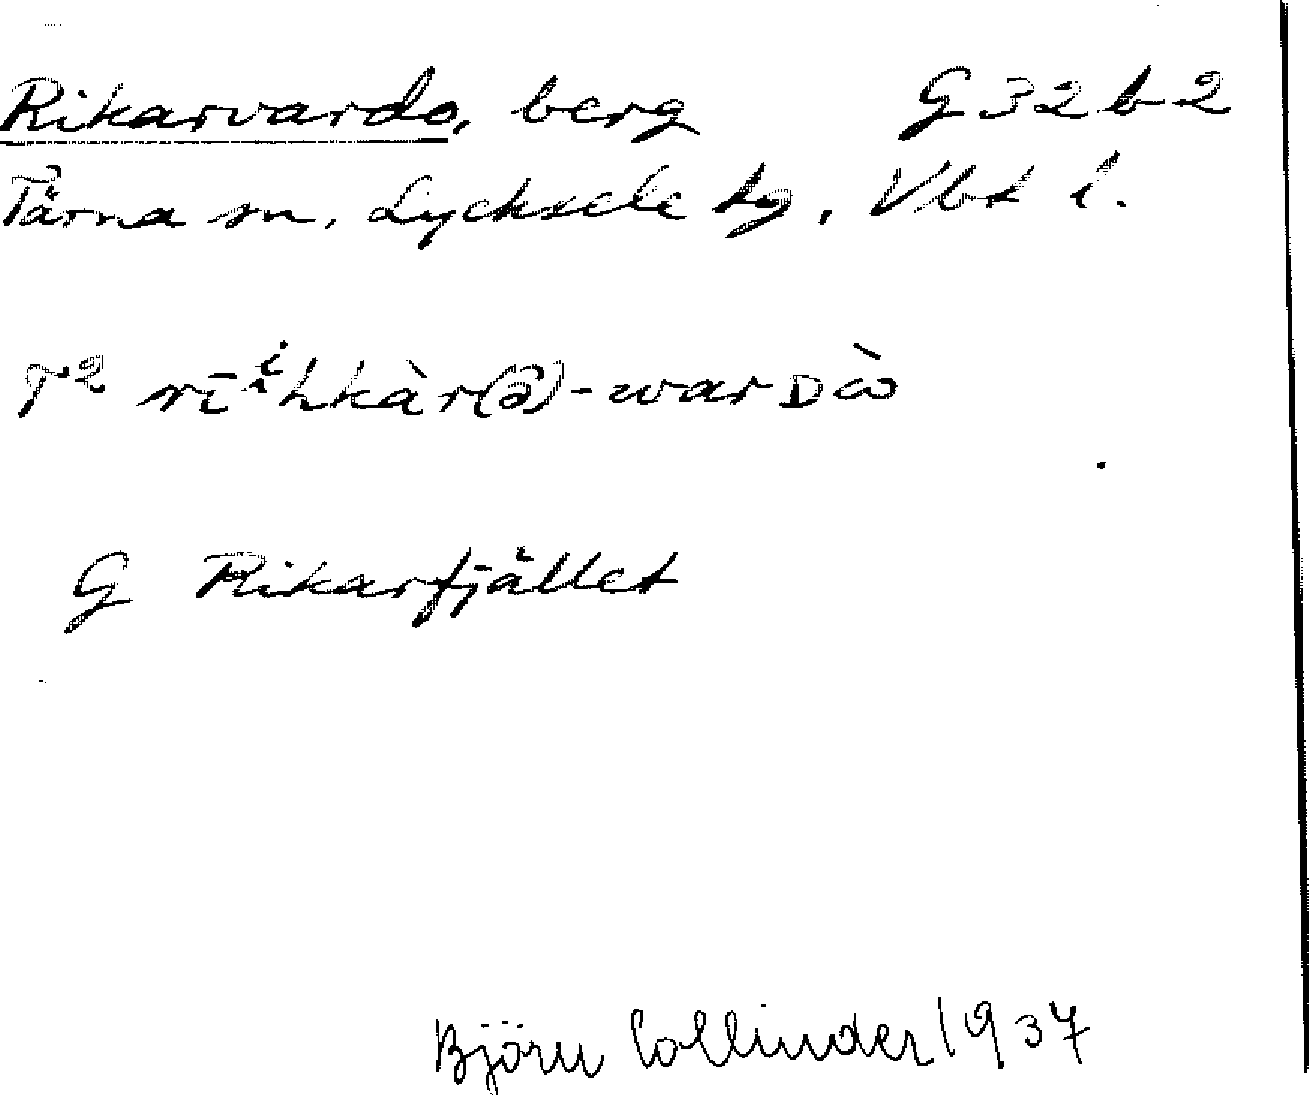 Rikarvardo, berg G 32 b 2
Tärna sn, Lycksele tg, Vbt l.
T² rīⁱhkàr(ə̂)-warDὼ
G Rikarfjället
Björn Collinder 1937